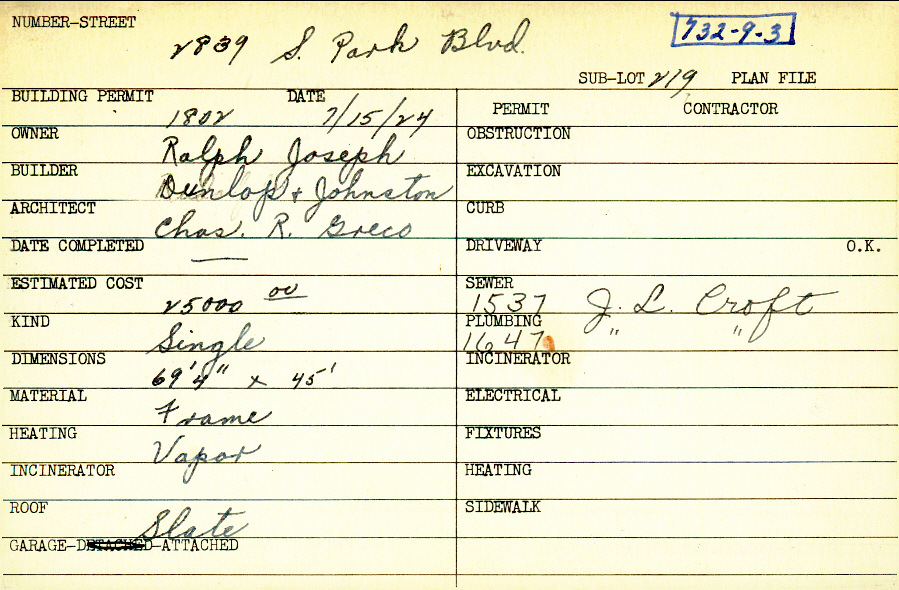 NUMBER-STREET
2839 S. Park Blvd.
732-9-3
SUB-LOT 219 PLAN FILE
BUILDING PERMIT 1802 DATE 7/15/24
PERMIT CONTRACTOR
OWNER Ralph Joseph
OBSTRUCTION
BUILDER Dunlop & Johnston
EXCAVATION
ARCHITECT Chas. R. Greco
CURB
DATE COMPLETED —
DRIVEWAY O.K.
ESTIMATED COST 25000 00
SEWER 1537 J. L. Croft
KIND Single
PLUMBING 1647 " "
DIMENSIONS 69'4" x 45'
INCINERATOR
MATERIAL Frame
ELECTRICAL
HEATING Vapor
FIXTURES
INCINERATOR
HEATING
ROOF Slate
SIDEWALK
GARAGE-DETACHED-ATTACHED